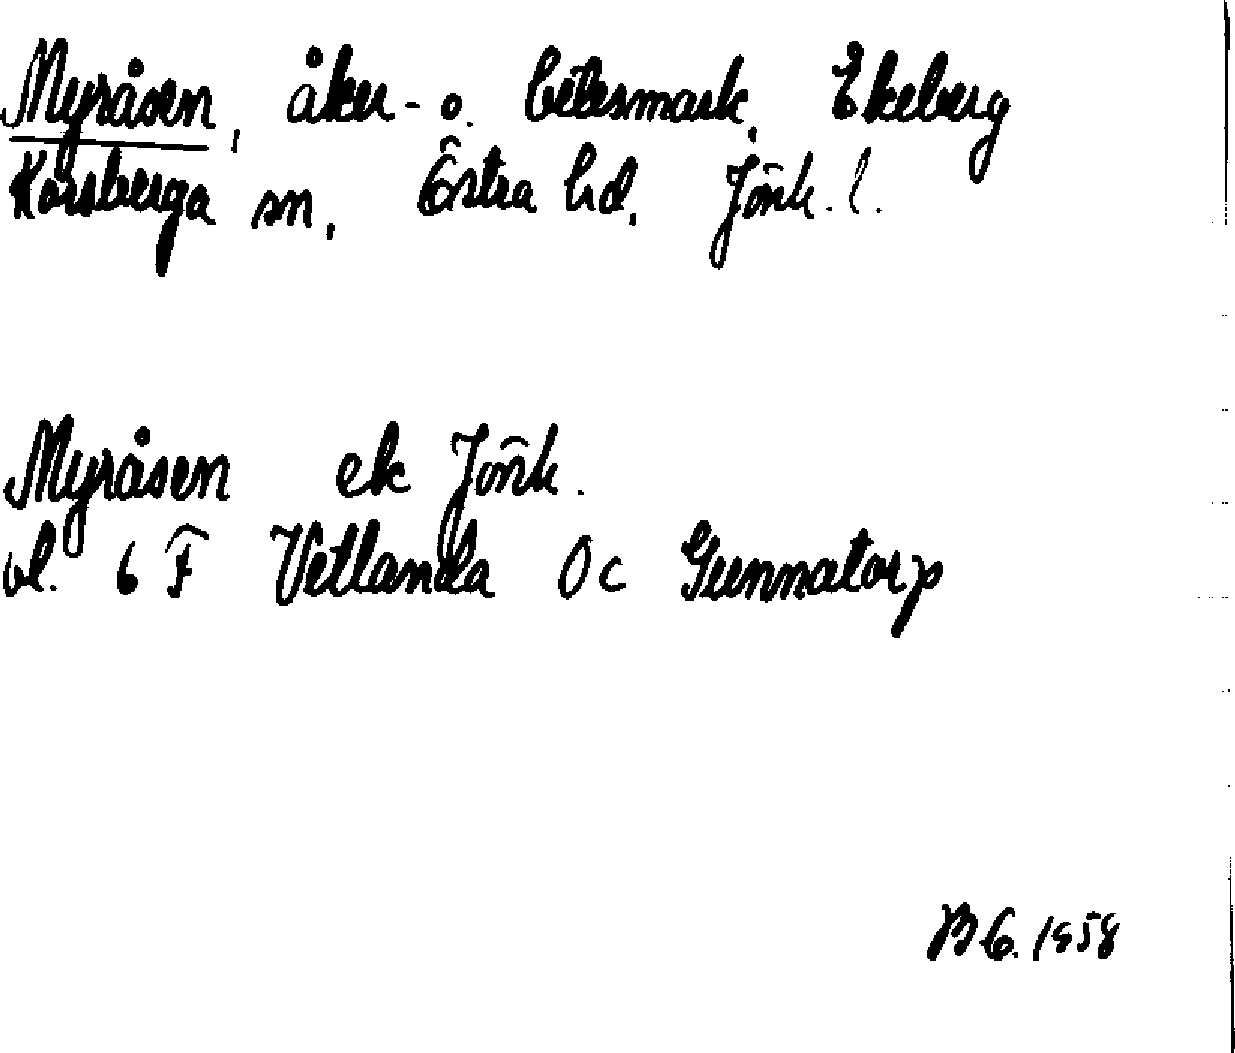 Myråsen, åker- o. betesmark, Ekeberg
Korsberga sn, Östra hd, Jönk. l.
Myråsen ek Jönk.
bl. 6 F Vetlanda 0 c Gunnatorp
BG. 1958